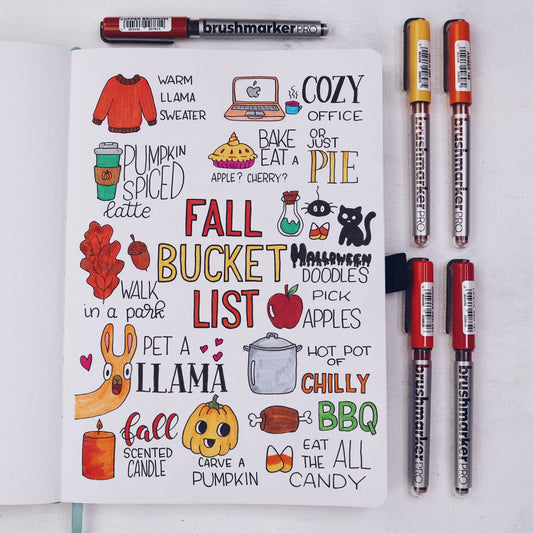 COPPER BROWN
brushmarkerPRO
WARM
LLAMA
SWEATER
COZY
OFFICE
PUMPKIN
SPICED
latte
BAKE
OR
JUST
EAT A
PIE
APPLE? CHERRY?
FALL
BUCKET
LIST
HALLOWEEN
DOODLES
WALK
in a park
PICK
APPLES
PET A
LLAMA
HOT POT
OF
CHILLY
BBQ
fall
SCENTED
CANDLE
CARVE A
PUMPKIN
EAT
THE ALL
CANDY
brushmarkerPRO
brushmarkerPRO
brushmarkerPRO
brushmarkerPRO